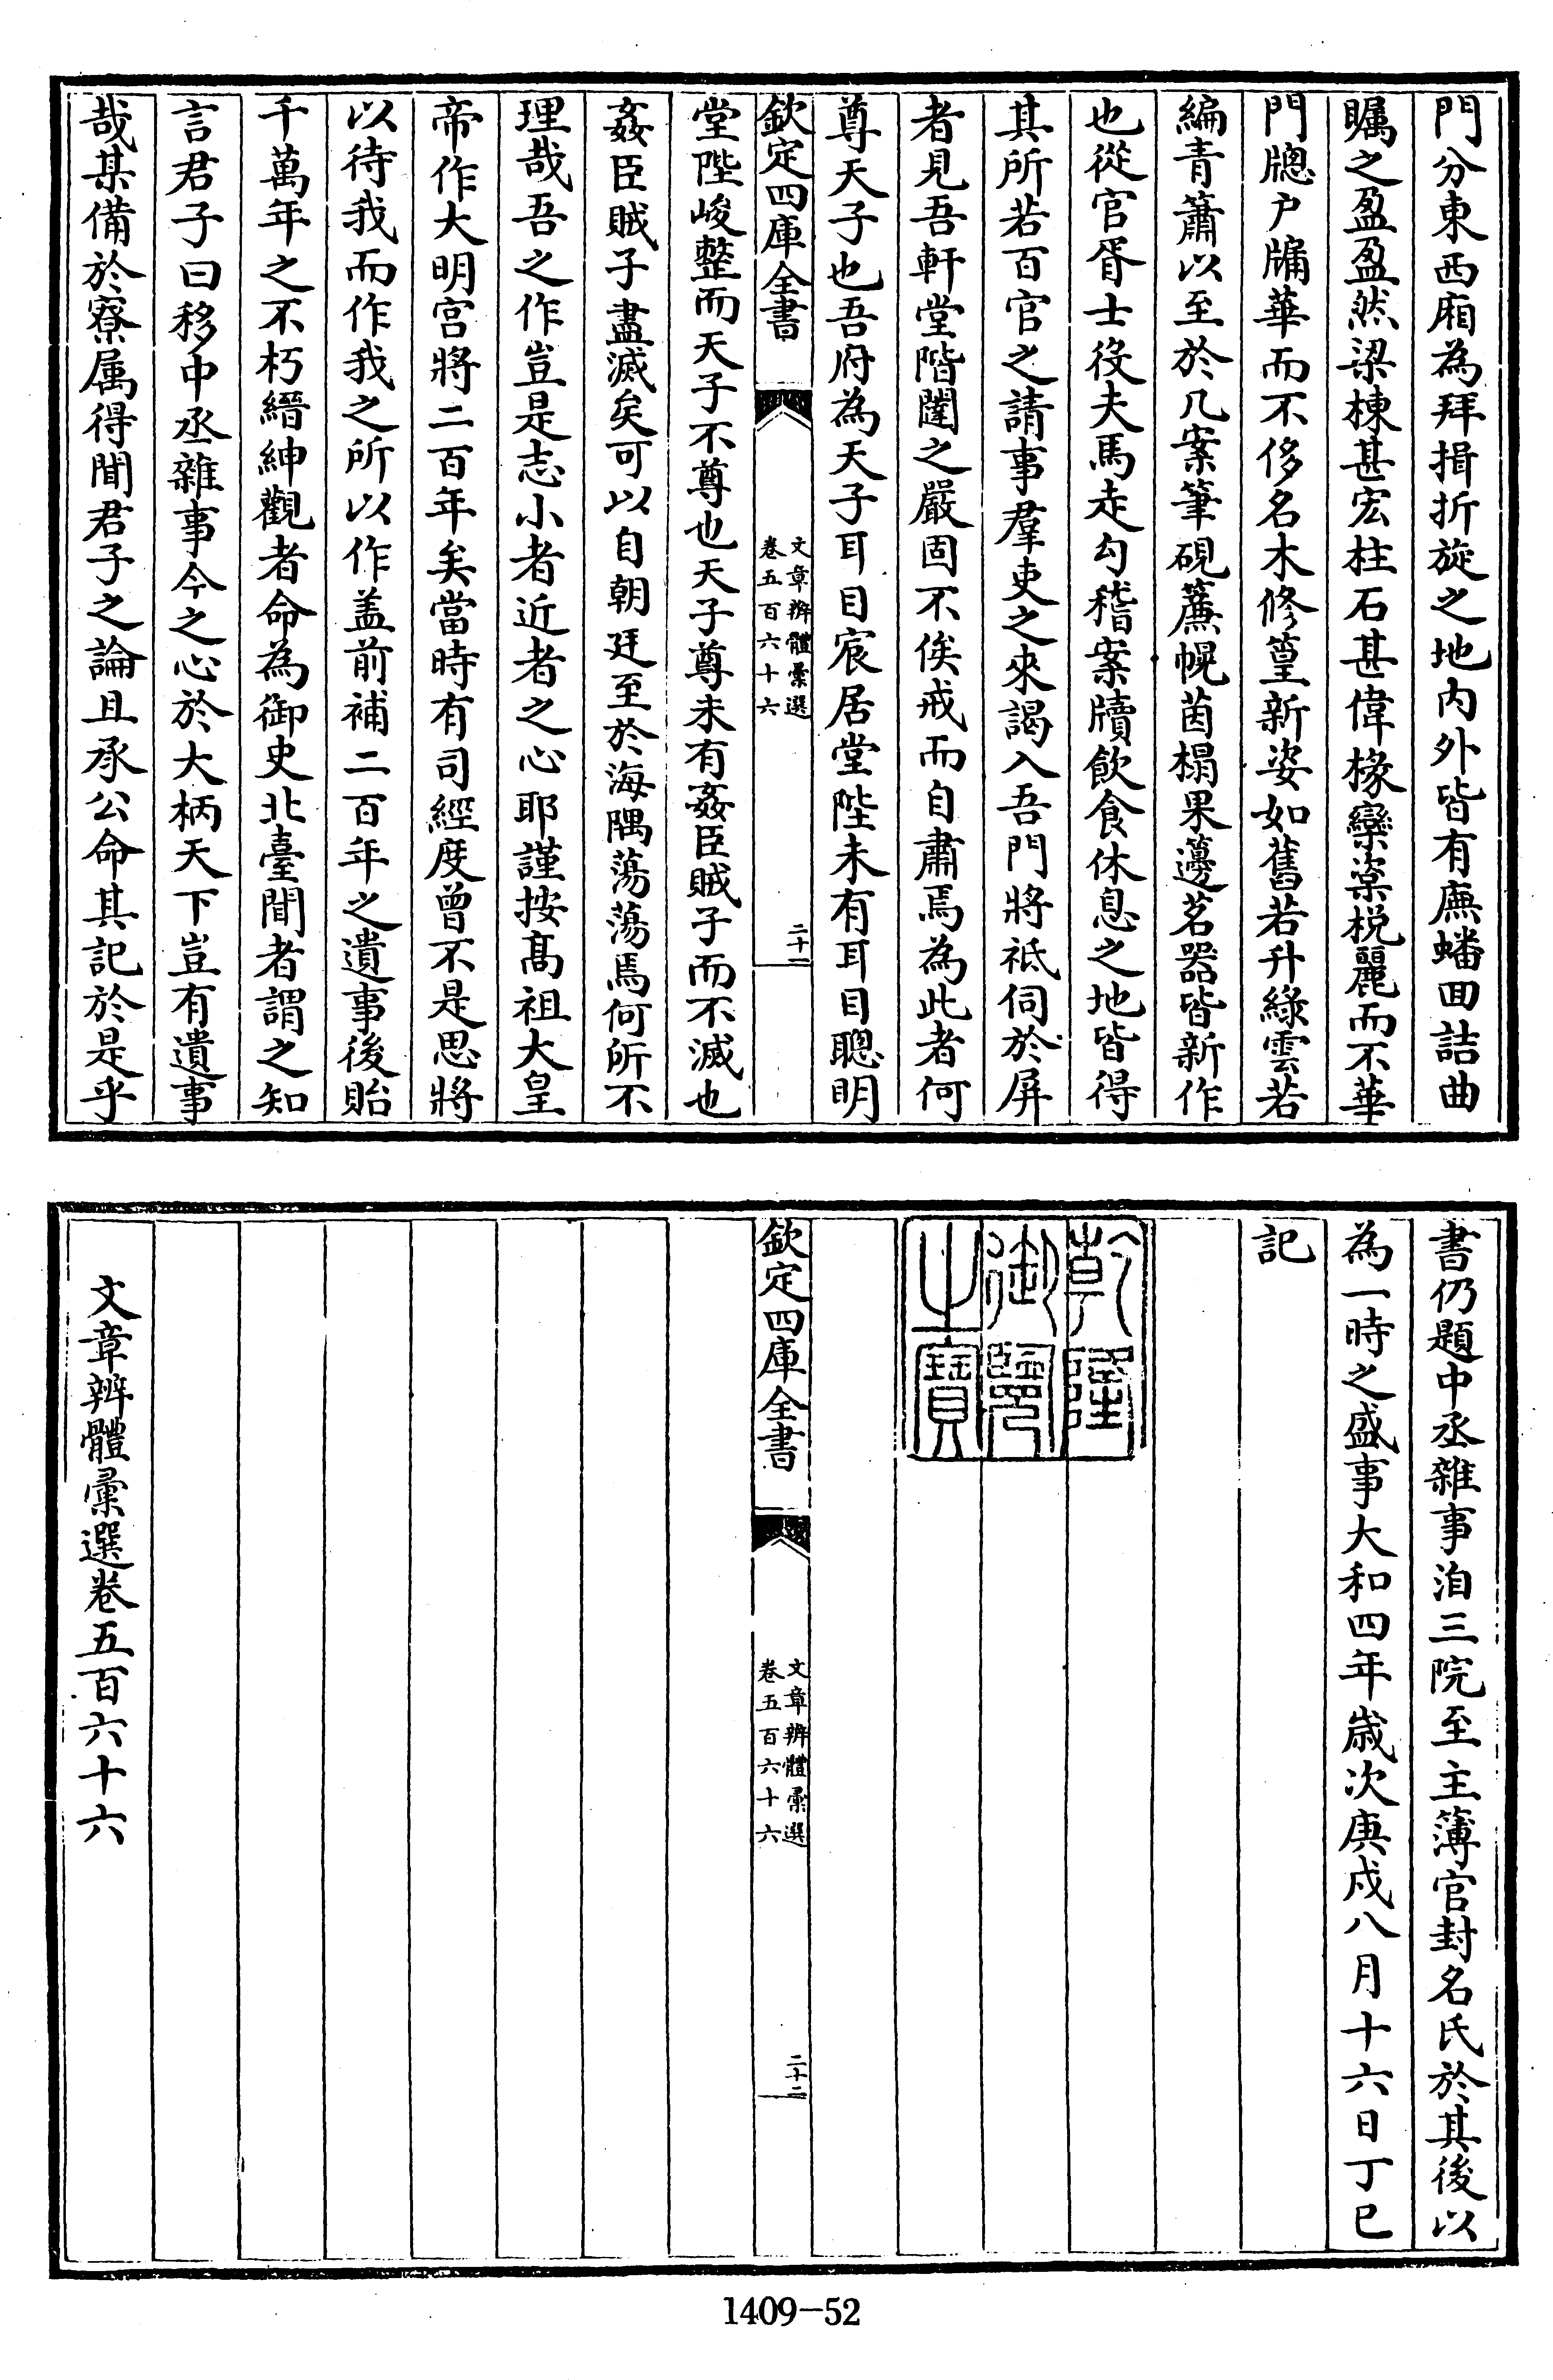 門分東西廂為拜揖折旋之地内外皆有廡蟠回詰曲
矚之盈盈然梁棟甚宏柱石甚偉椽欒楶棁麗而不華
門牎户牖華而不侈名木修篁新姿如舊若升綠雲若
編青簫以至於几案筆硯簾幌茵榻果邊茗器皆新作
也從官胥士役夫馬走勾稽案牘飲食休息之地皆得
其所若百官之請事羣吏之來謁入吾門將祗伺於屏
者見吾軒堂階闥之嚴固不俟戒而自肅焉為此者何
尊天子也吾府為天子耳目宸居堂陛未有耳目聰明
欽定四庫全書
文章辨體彚選
卷五百六十六
二十一
堂陛峻整而天子不尊也天子尊未有姦臣賊子而不滅也
姦臣賊子盡滅矣可以自朝廷至於海隅蕩蕩焉何所不
理哉吾之作豈是志小者近者之心耶謹按髙祖大皇
帝作大明宫將二百年矣當時有司經度曾不是思將
以待我而作我之所以作盖前補二百年之遺事後貽
千萬年之不朽縉紳觀者命為御史北臺聞者謂之知
言君子曰移中丞雜事今之心於大柄天下豈有遺事
哉某備於寮属得聞君子之論且承公命其記於是乎
書仍題中丞雜事洎三院至主簿官封名氏於其後以
為一時之盛事大和四年歲次庚戍八月十六日丁巳
記
乾隆
御覽
之寶
欽定四庫全書
文章辨體彚選
卷五百六十六
二十二
文章辨體彚選卷五百六十六
1409-52